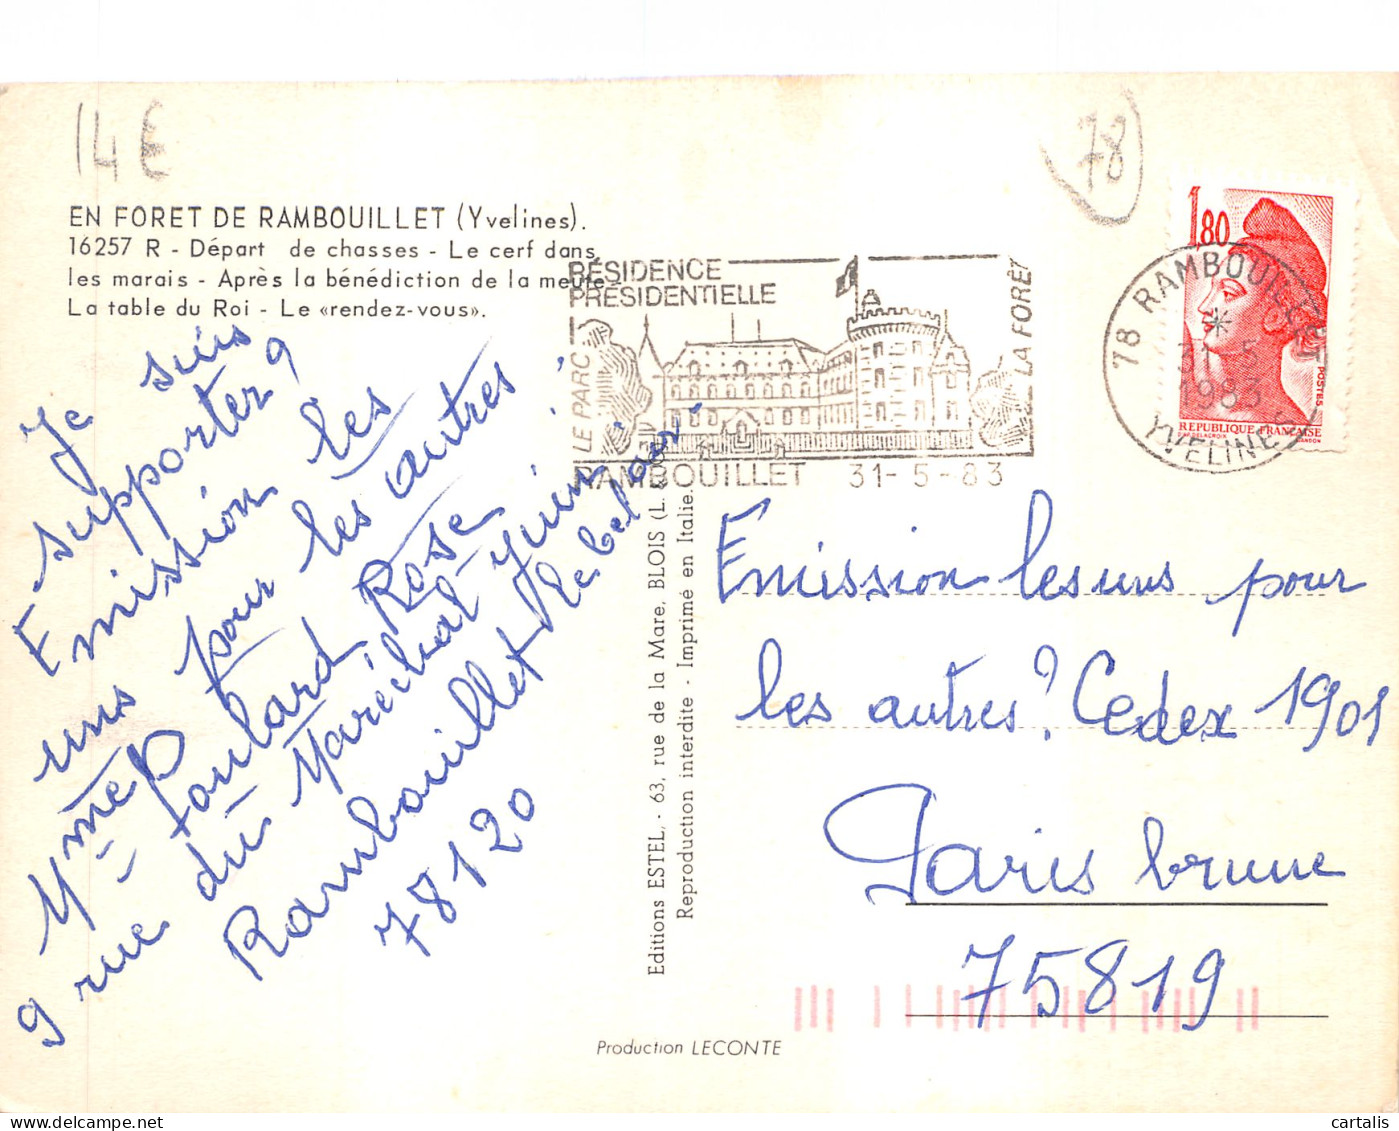 14€
78
EN FORET DE RAMBOUILLET (Yvelines).
16257 R - Départ de chasses - Le cerf dans
les marais - Après la bénédiction de la meute
La table du Roi - Le «rendez-vous».
RÉSIDENCE
PRÉSIDENTIELLE
LE PARC
LA FORÊT
RAMBOUILLET 31-5-83
1,80
POSTES
REPUBLIQUE FRANÇAISE
D'AP. DELACROIX GANDON
78 RAMBOUILLET
31-5
1983
YVELINES
Je suis
supporter
Emission les
uns pour les autres
Mme
Foulard Rose
9 rue du Maréchal Juin
Rambouillet
78120
Editions ESTEL, - 63, rue de la Mare, BLOIS (L.
Reproduction interdite - Imprimé en Italie.
Emission les uns pour
les autres? Cedex 1901
Paris brune
75819
Production LECONTE
cartalis